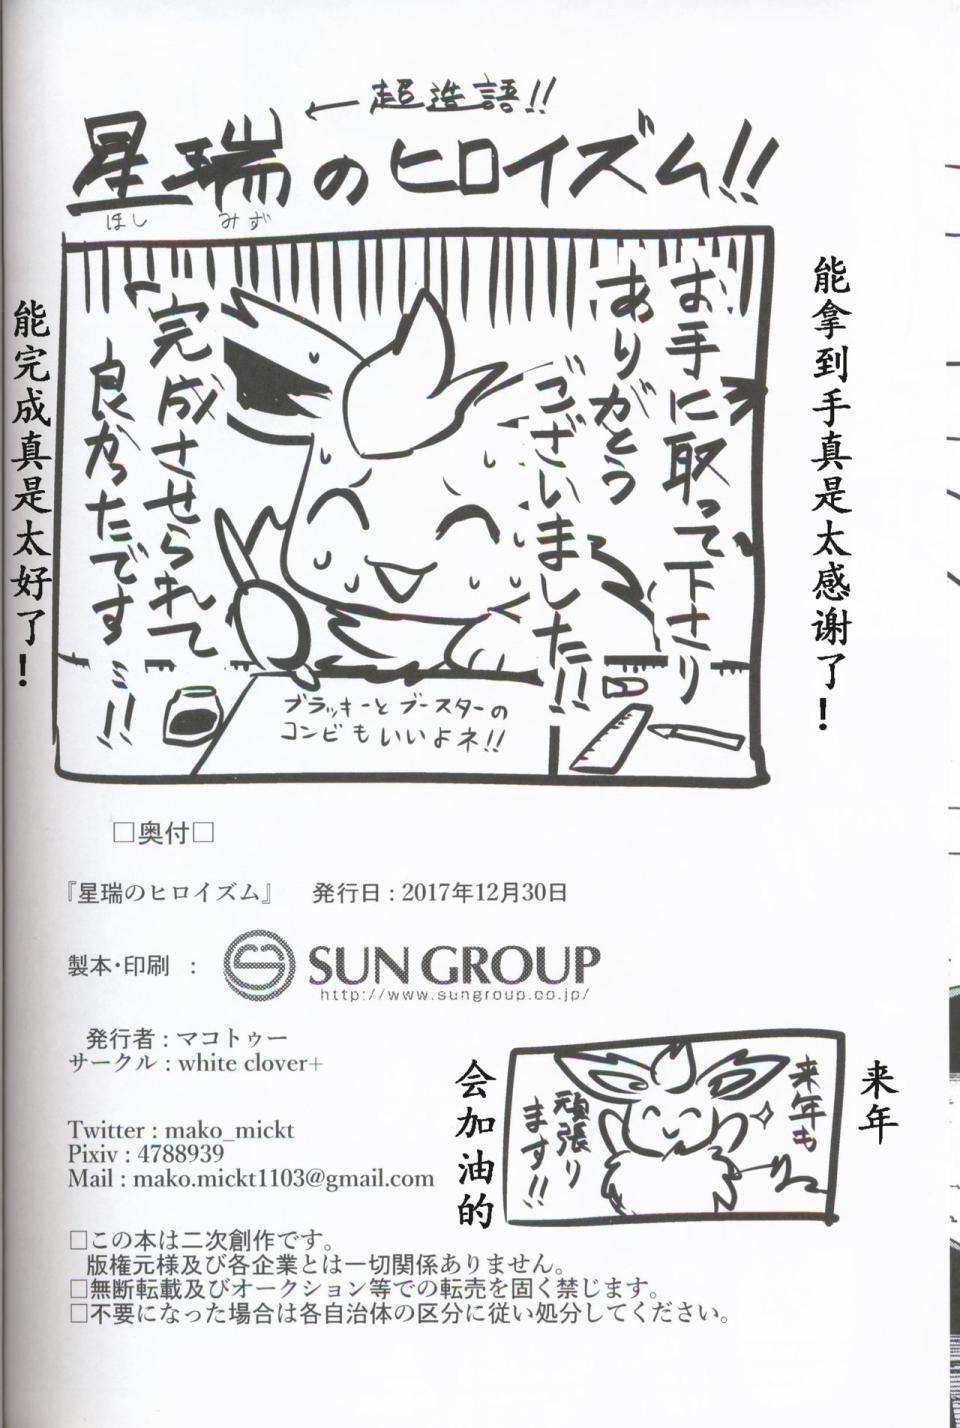 ←超造語!!
星瑞のヒロイズム!!
ほし みず
能拿到手真是太感谢了！
お手に取って下さり
ありがとう
ございました!!
完成させられて
良かったです…!!
能完成真是太好了！
ブラッキーとブースターの
コンビもいいよネ!!
□奥付□
『星瑞のヒロイズム』 発行日 : 2017年12月30日
製本・印刷 : SUN GROUP
http://www.sungroup.co.jp/
発行者 : マコトゥー
サークル : white clover+
来年
来年も
頑張り
ます!!
会加油的
Twitter : mako_mickt
Pixiv : 4788939
Mail : mako.mickt1103@gmail.com
□この本は二次創作です。
版権元様及び各企業とは一切関係ありません。
□無断転載及びオークション等での転売を固く禁じます。
□不要になった場合は各自治体の区分に従い処分してください。